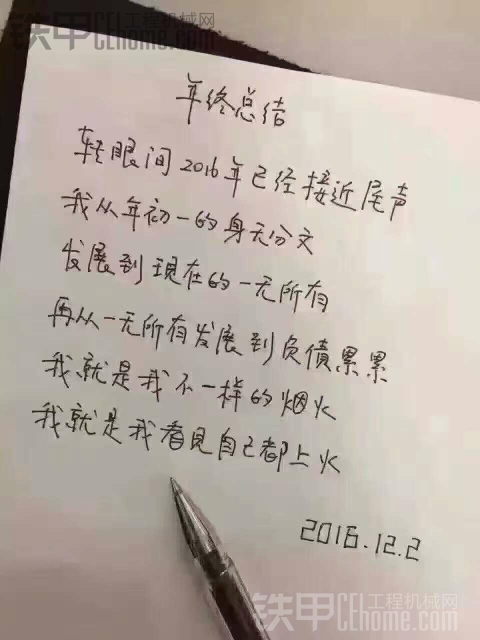 铁甲 工程机械网
CEhome.com
年终总结
转眼间2016年已经接近尾声
我从年初一的身无分文
发展到现在的一无所有
再从一无所有发展到负债累累
我就是我不一样的烟火
我就是我看见自己都上火
2016.12.2
铁甲 工程机械网
CEhome.com